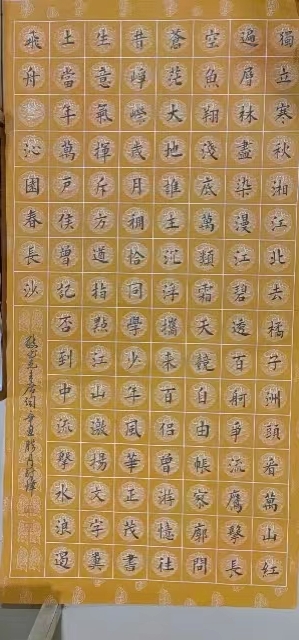 獨立寒秋湘江北去橘子洲頭看萬山紅
遍層林盡染漫江碧透百舸爭流鷹擊長
空魚翔淺底萬類霜天競自由悵寥廓問
蒼茫大地誰主沉浮攜來百侶曾游憶往
昔崢嶸歲月稠恰同學少年風華正茂書
生意氣揮斥方遒指點江山激揚文字糞
土當年萬戶侯曾記否到中流擊水浪遏
飛舟沁園春長沙
毛主席詞辛丑腊月